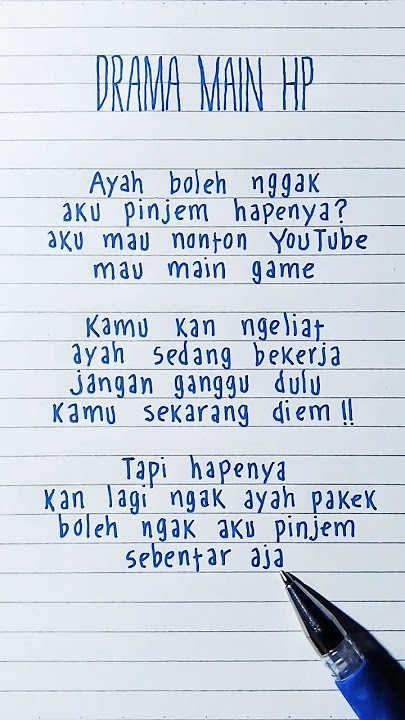 DRAMA MAIN HP
Ayah boleh nggak
aku pinjem hapenya?
aku mau nonton YouTube
mau main game
Kamu kan ngeliat
ayah sedang bekerja
jangan ganggu dulu
Kamu sekarang diem!!
Tapi hapenya
kan lagi ngak ayah pakek
boleh ngak aku pinjem
sebentar aja